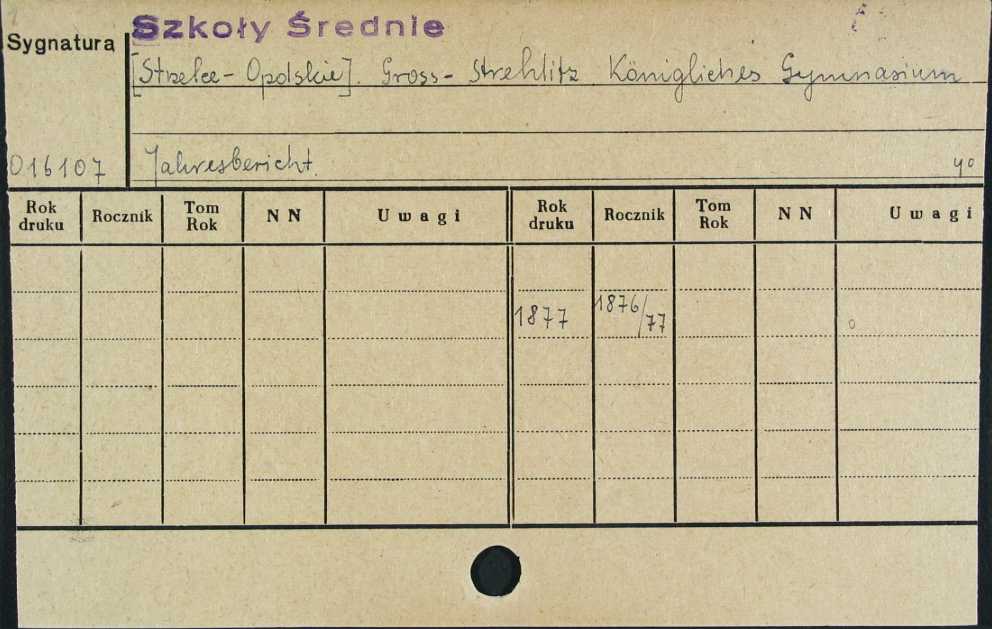 Szkoły Średnie
Sygnatura
[Strzelce-Opolskie]. Gross-Strehlitz Königliches Gymnasium
016107 Jahresbericht. 4º
Rok druku Rocznik Tom Rok NN Uwagi Rok druku Rocznik Tom Rok NN Uwagi
1877 1876/77